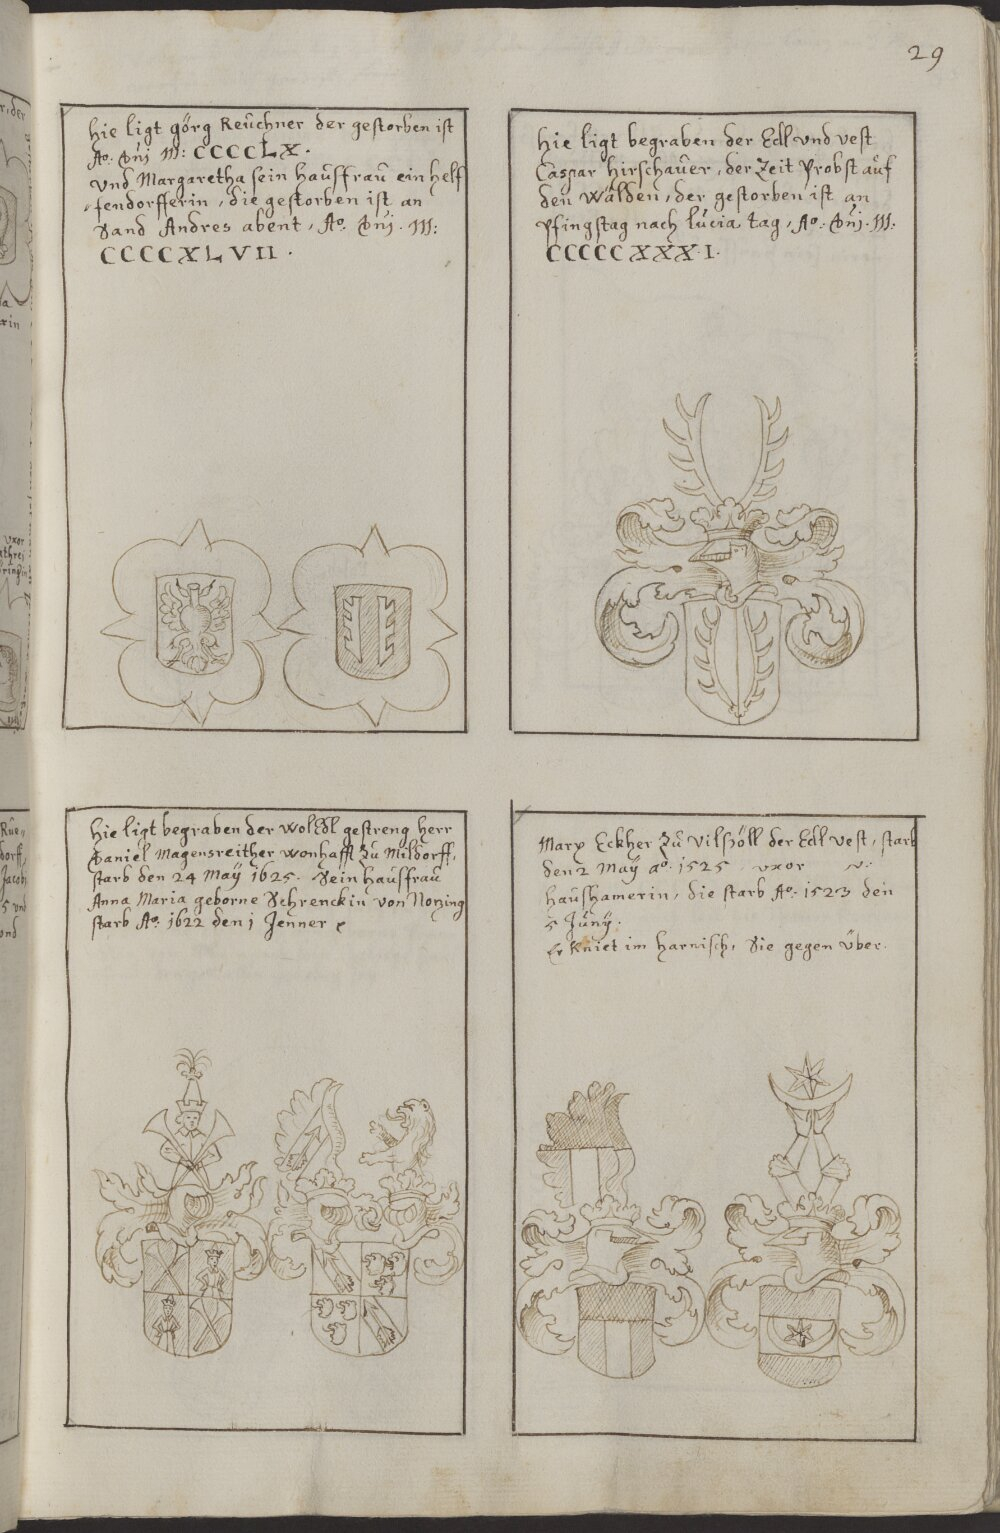 29
Hie ligt görg Reüchner der gestorben ist
Ao. Dni M: CCCCLX.
Vnd Margaretha sein haüsfraü ein helf
fendorfferin, die gestorben ist an
Sand Andres abent, Ao. Dni. M:
CCCCXLVII.
Hie ligt begraben der Edl vnd vest
Caspar Hirschaüer, der Zeit Probst aüf
den Wälden, der gestorben ist an
Pfingstag nach Lücia tag, Ao. Dni. M:
CCCCCXXXI.
Hie ligt begraben der WolEdl gestreng Herr
Daniel Magensreither wonhafft Zu Mildorff,
starb den 24 Maÿ 1625. Sein haüsfraü
Anna Maria geborne Schrenckin von Nozing
starb Ao. 1622 den 1 Jenner
Marx Eckher Zü Vilsöll der Edl vest, starb
den 2 Maÿ ao. 1525. vxor
haüshamerin, die starb Ao. 1523 den
5 Jünÿ.
Er Kniet im Harnisch, Sie gegen Über.